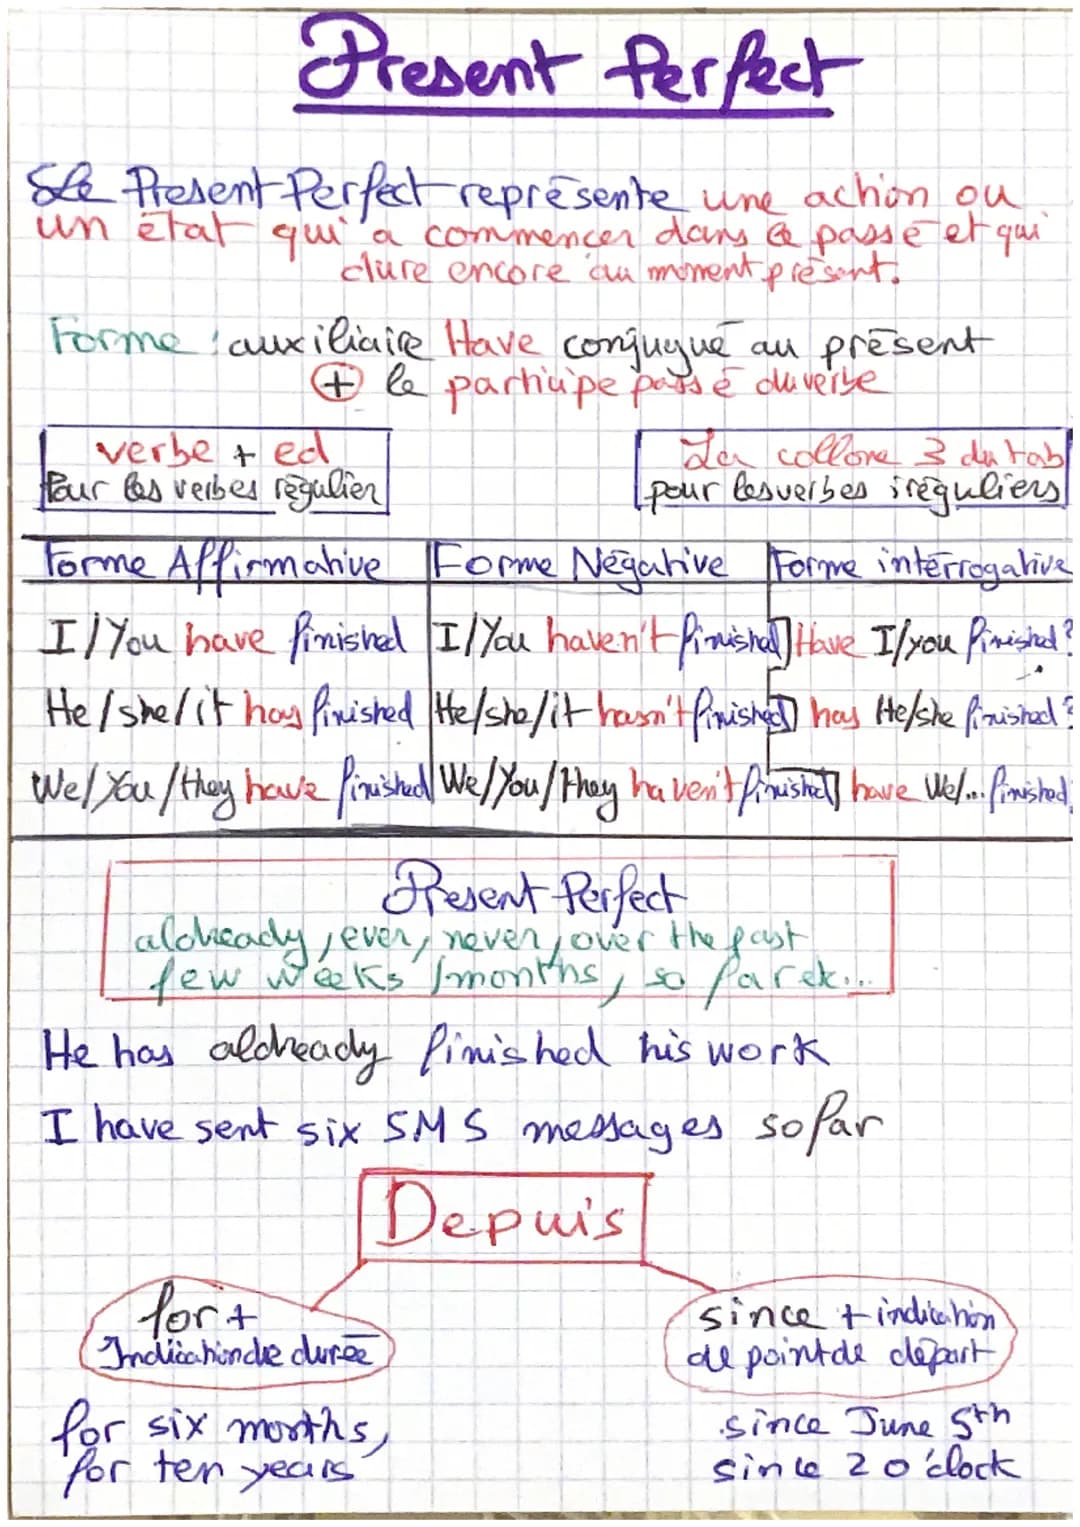 Present Perfect
Le Present Perfect représente une action ou
un état qui a commencer dans le passé et qui
dure encore au moment présent.
Forme : auxiliaire Have conjugué au présent
+ le participe passé du verbe
verbe + ed
Pour les verbes régulier
La collone 3 du tab
pour les verbes iréguliers
Forme Affirmative Forme Négative Forme interrogative
I/You have finished I/You haven't finished Have I/you finished?
He/she/it has finished He/she/it hasn't finished has He/she finished?
We/You/they have finished We/You/they haven't finished have We/... finished
Present Perfect
aldready, ever, never, over the past
few weeks/months, so far ek...
He has aldready finished his work
I have sent six SMS messages so far
Depuis
for +
Indication de durée
since + indication
de point de départ
for six months,
for ten years
since June 5th
since 2 o'clock